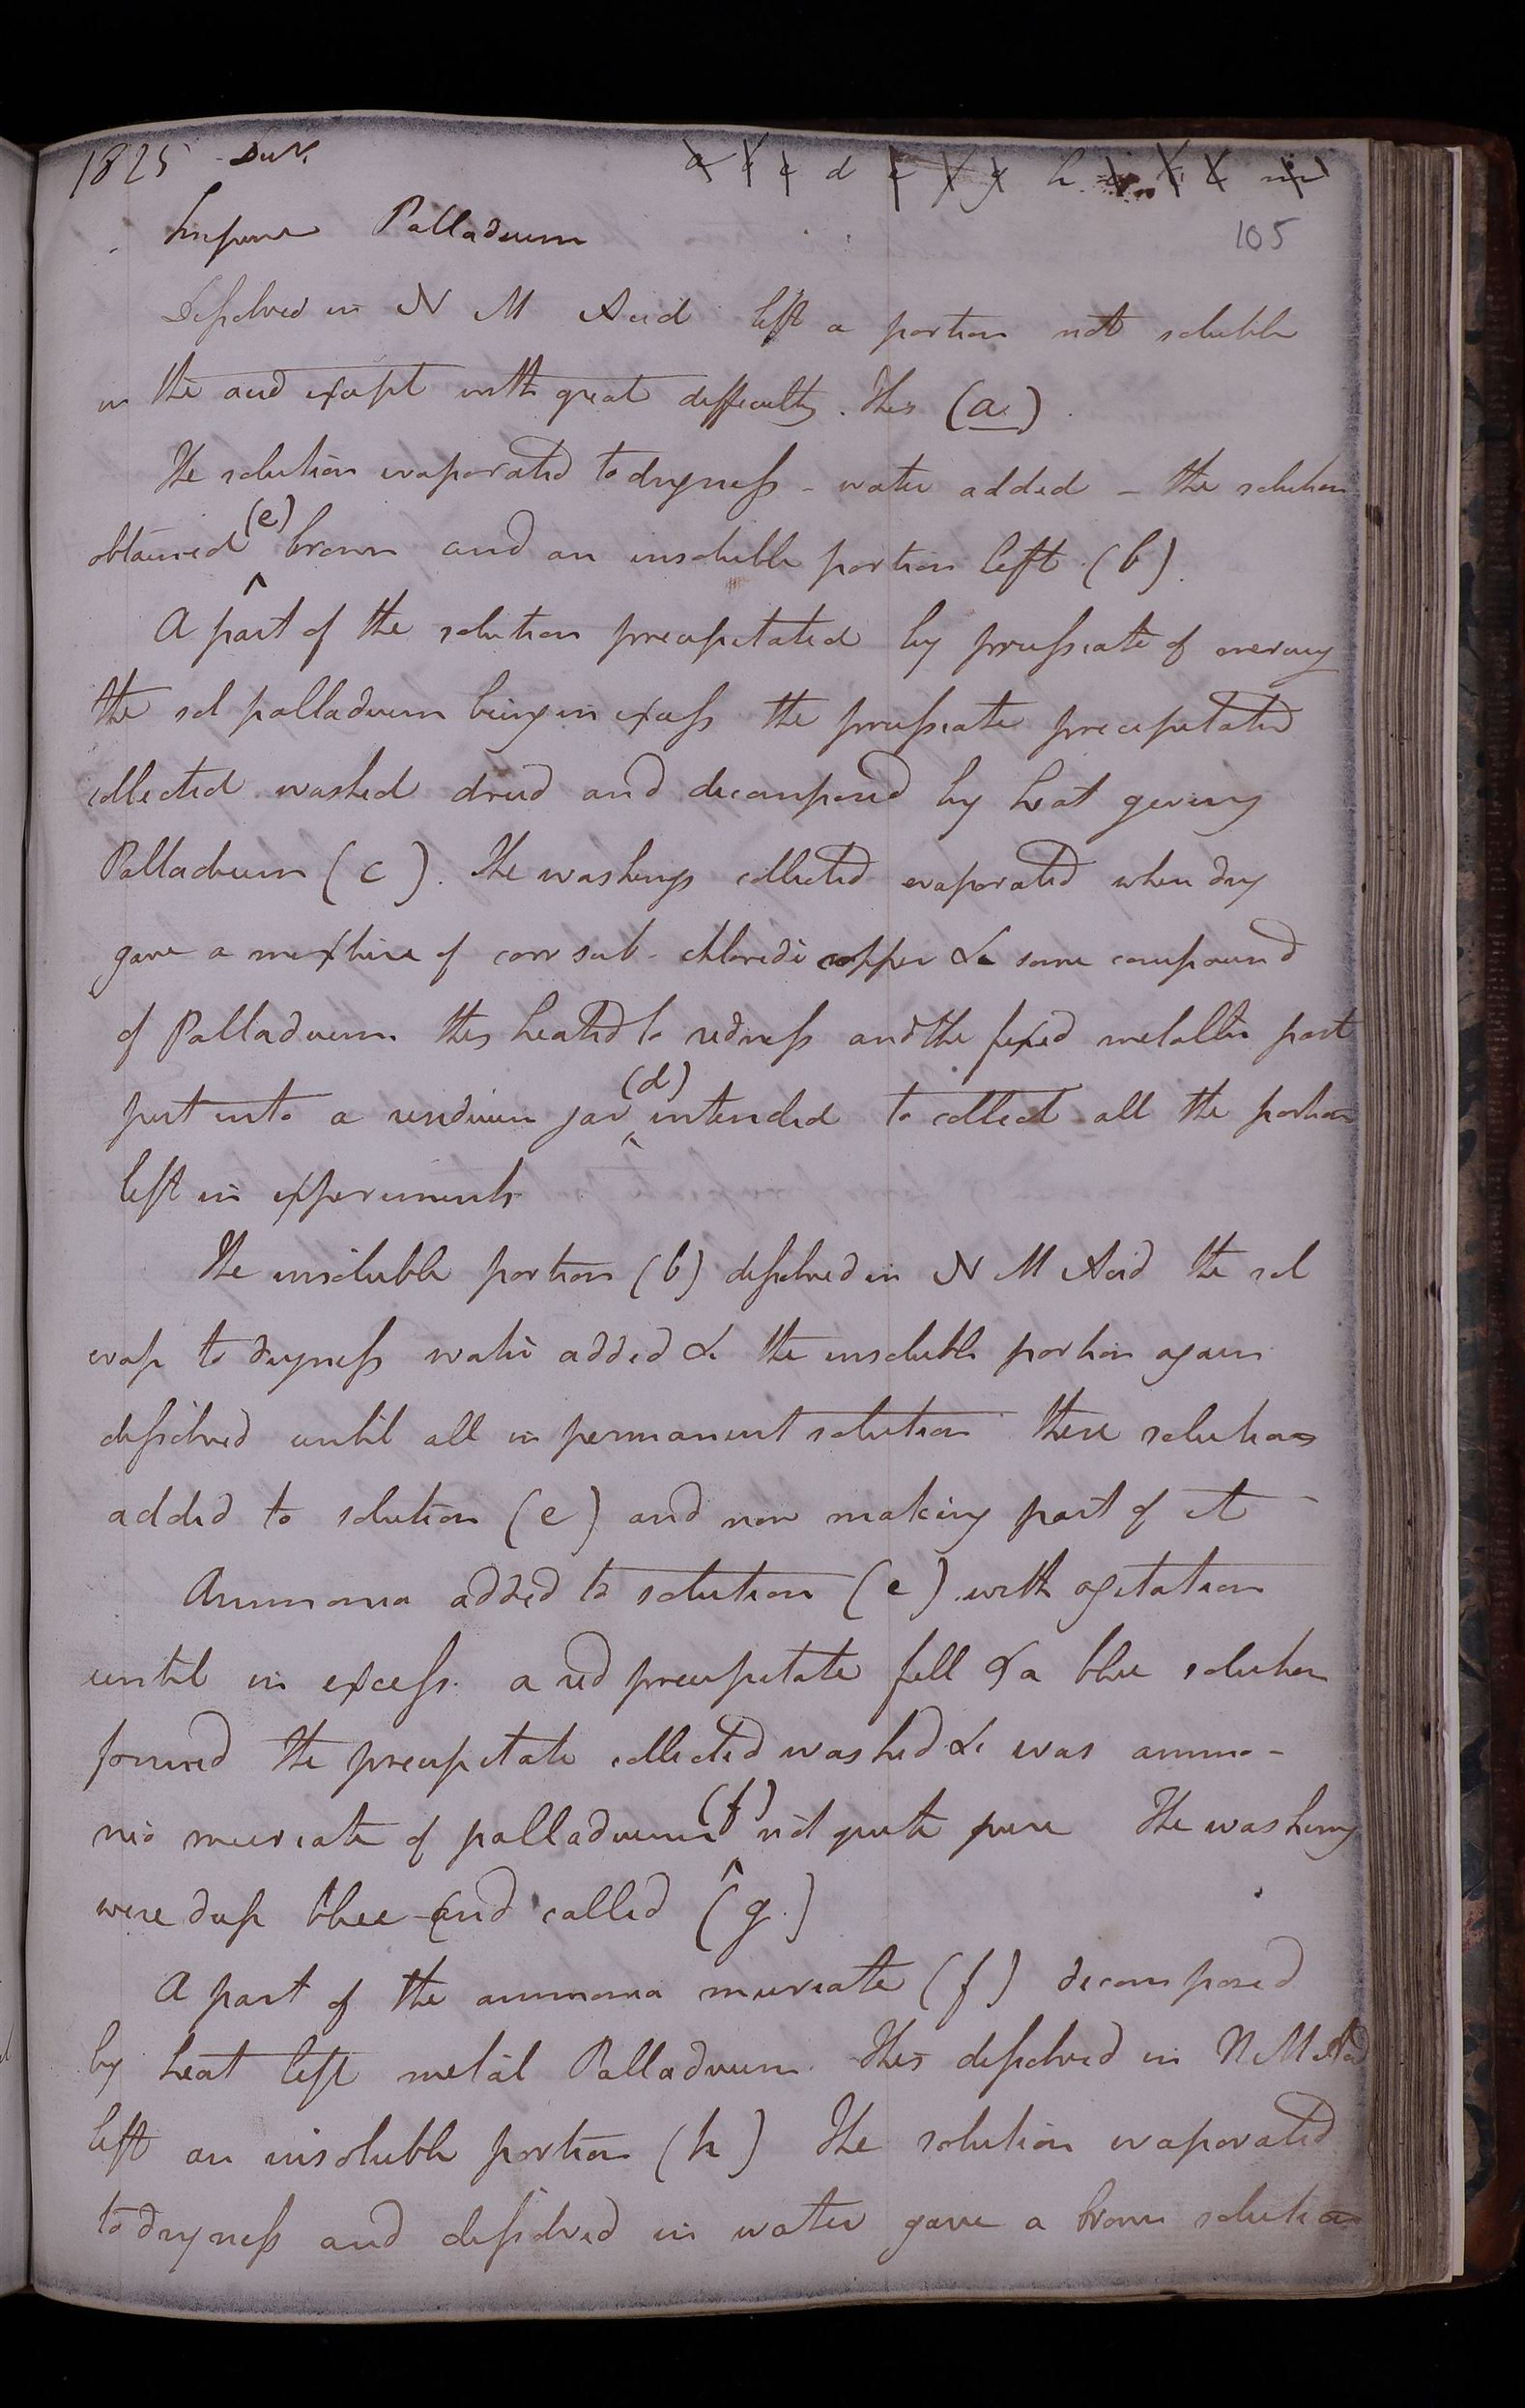 1825 Decr. a b c d e f g h i k l m
Impure Palladium 105
Dissolved in N M Acid left a portion not soluble
in the acid except with great difficulty. This (a).
The solution evaporated to dryness - water added - the solution
obtained (e) brown and an insoluble portion left (b).
A part of the solution precipitated by prussiate of mercury
the sol palladium being in excess the prussiate precipitated
collected washed dried and decomposed by heat giving
Palladium (c). The washings collected evaporated when dry
gave a mixture of corr sub. chloride copper & some compound
of Palladium this heated to redness and the fixed metallic part
put into a residuum jar (d) intended to collect all the portions
left in experiments
The insoluble portion (b) dissolved in N M Acid the sol
evap to dryness water added & the insoluble portion again
dissolved until all in permanent solution these solutions
added to solution (e) and now making part of it
Ammonia added to solution (e) with agitation
until in excess. a red precipitate fell & a blue solution
formed the precipitate collected washed & was ammo-
nio muriate of palladium (f) not quite pure The washings
were deep blue and called (g.)
A part of the ammonia muriate (f) decomposed
by heat left metal Palladium. This dissolved in N M Acid
left an insoluble portion (h) The solution evaporated
to dryness and dissolved in water gave a brown solution